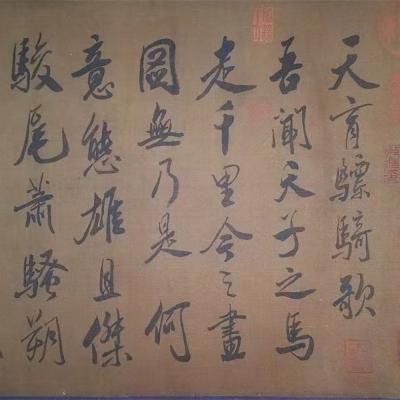 天育驃騎歌
吾聞天子之馬
走千里今之畫
圖無乃是何
意態雄且傑
駿尾蕭騷朔